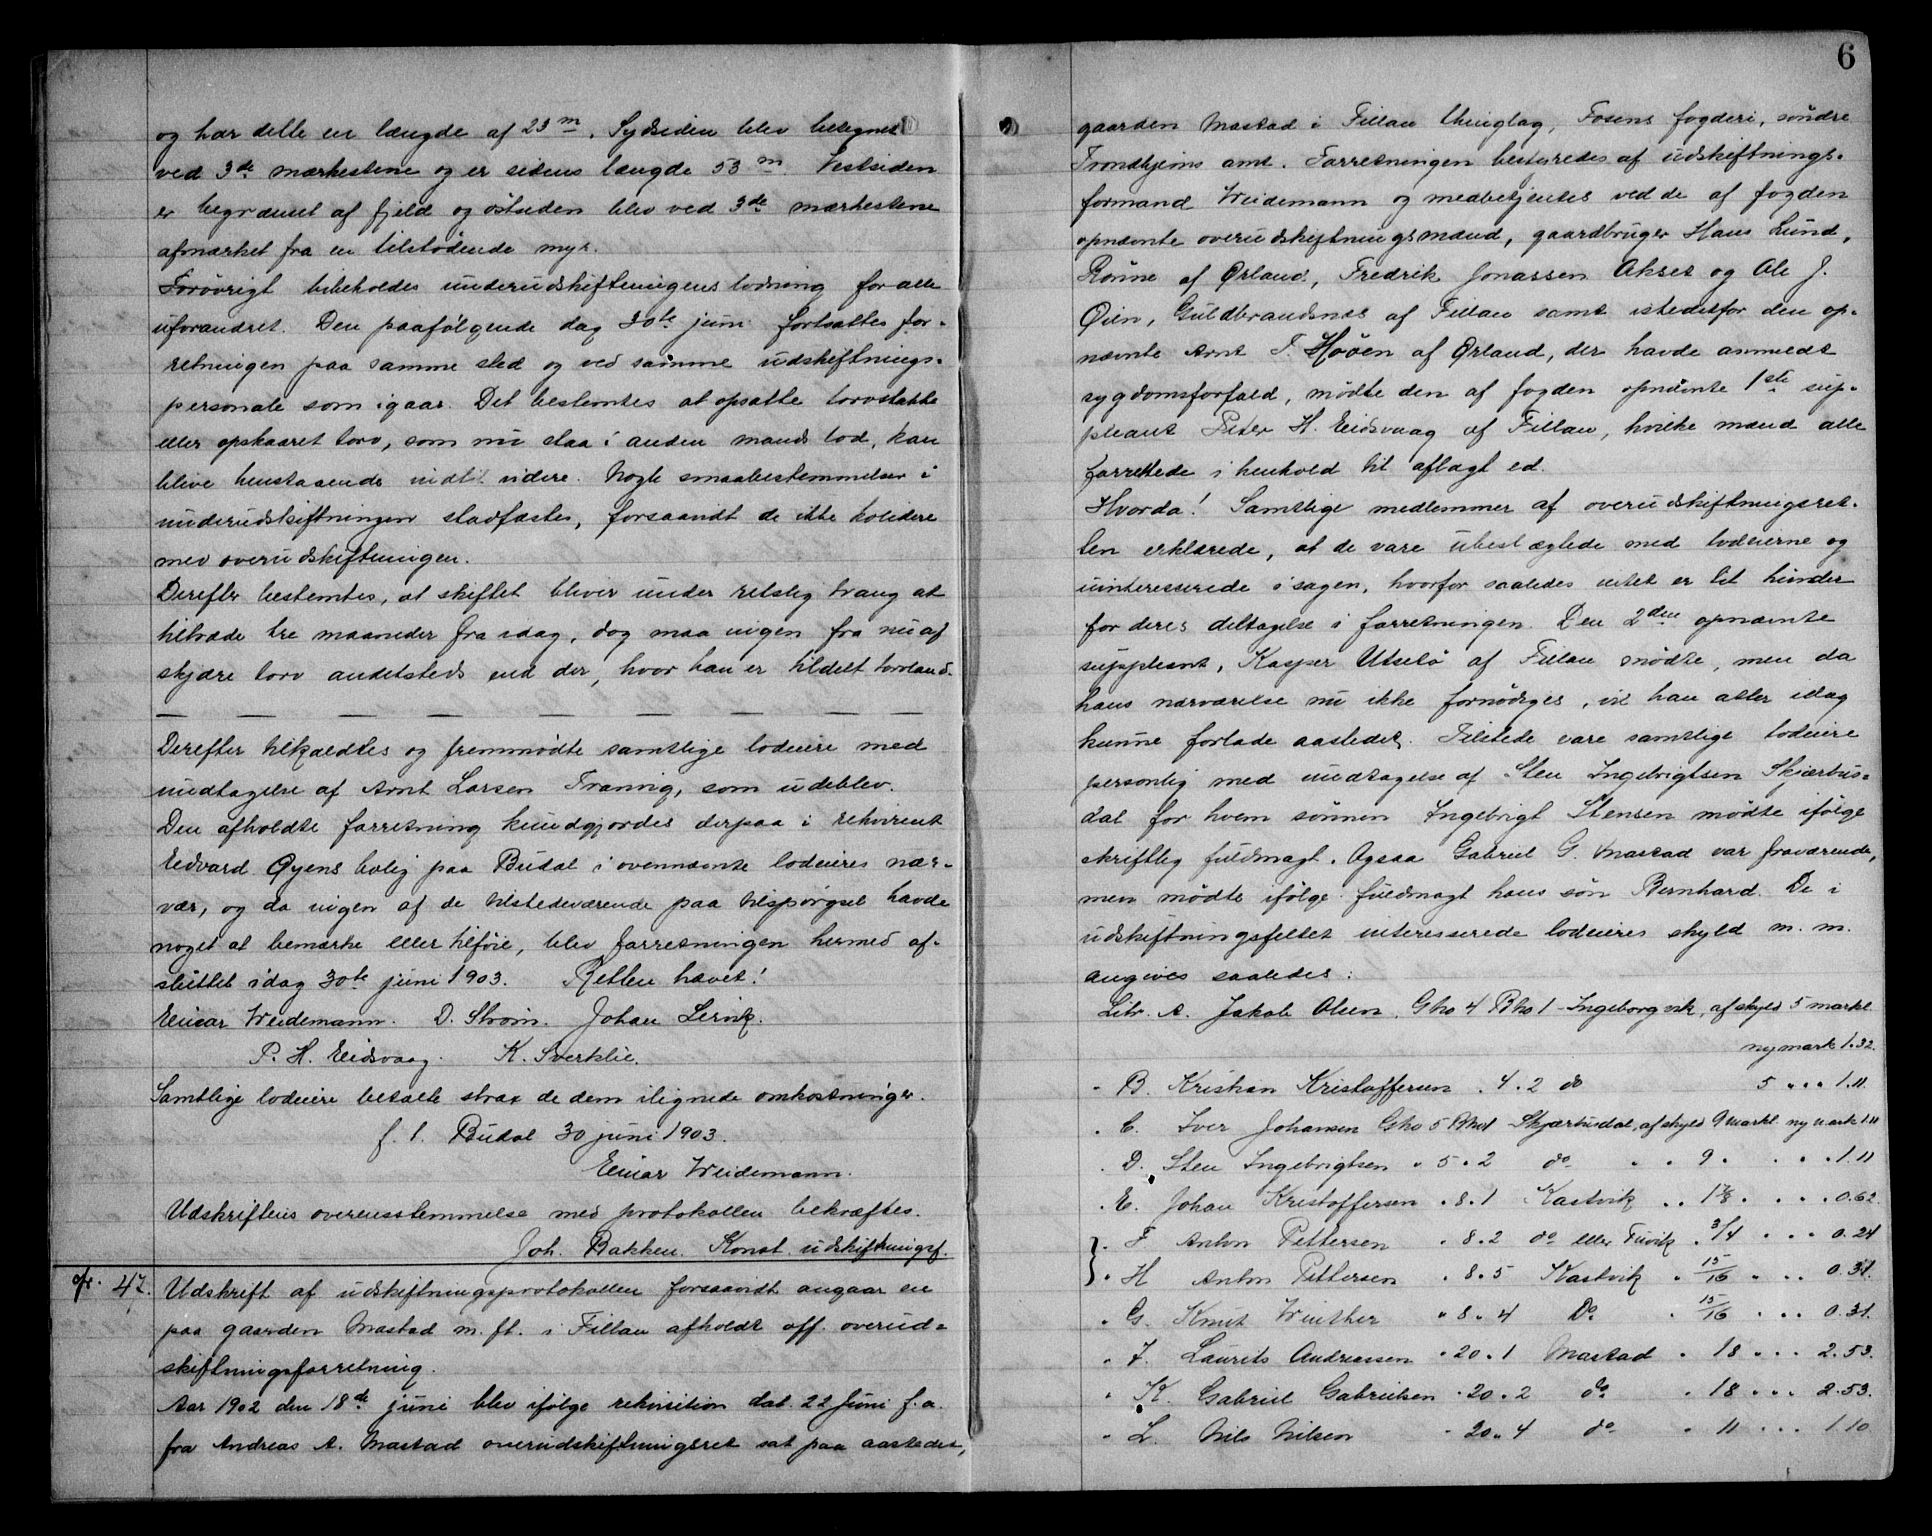 og har dette en længde af 23 m. Sydsiden blev betegnet
ved 3de mærkestene og er sidens længde 53 m. Vestsiden
er begrænset af fjeld og østsiden blev ved 3de mærkestene
afmærket fra en tilstødende myr.
Forøvrigt bibeholdes underudskiftningens lodning for alle
uforandret. Den paafølgende dag 30te juni fortsattes for-
retningen paa samme sted og ved samme udskiftnings-
personale som igaar. Det bestemtes at opsatte torvstakke
eller opskaaret torv, som nu staa i anden mands lod, kan
blive henstaaende indtil videre. Nogle smaabestemmelser i
underudskiftningen stadfæstes, forsaavidt de ikke kolidere
med overudskiftningen.
Derefter bestemtes, at skiftet bliver under retslig tvang at
tiltræde tre maaneder fra idag, dog maa ingen fra nu af
skjære torv andetsteds end der, hvor han er tildelt torvland.
Derefter tilkaldtes og fremmødte samtlige lodeiere med
undtagelse af Arnt Larsen Tranvig, som udeblev.
Den afholdte forretning kundgjordes derpaa i rekvirent
Edvard Øyens bolig paa Budal i ovennævnte lodeieres nær-
vær, og da ingen af de tilstedeværende paa tilspørgsel havde
noget at bemærke eller tilføie, blev forretningen hermed af-
sluttet idag 30te juni 1903. Retten hævet!
Einar Weidemann. D. Strøm. Johan Lervik.
P. H. Eidsvaag. K. Sverklie.
Samtlige lodeiere betalte strax de dem ilignede omkostninger.
f. t. Budal 30 juni 1903.
Einar Weidemann.
Udskriftens overensstemmelse med protokollen bekræftes.
Joh. Bakken. Konst. udskiftningsf.
47. Udskrift af udskiftningsprotokollen forsaavidt angaar en
paa gaarden Mastad m. fl. i Fillan afholdt off. overud-
skiftningsforretning.
Aar 1902 den 18de juni blev ifølge rekvisition dat. 22 Juni f. a.
fra Andreas A. Mastad overudskiftningsret sat paa aastedet,
6
gaarden Mastad i Fillan thinglag, Fosens fogderi, søndre
Trondhjems amt. Forretningen bestyredes af udskiftnings-
formand Weidemann og medbetjentes ved de af fogden
opnævnte overudskiftningsmænd, gaardbruger Hans Lund,
Rønne af Ørland, Fredrik Jonassen Akset og Ole J.
Øien, Guldbrandsnes af Fillan samt istedetfor den op-
nævnte Arnt T. Hoøen af Ørland, der havde anmeldt
sygdomsforfald, mødte den af fogden opnævnte 1ste sup-
pleant Peter H. Eidsvaag af Fillan, hvilke mænd alle
forrettede i henhold til aflagt ed.
Hvorda! Samtlige medlemmer af overudskiftningsret-
ten erklærede, at de vare ubestægtede med lodeierne og
uinteresserede i sagen, hvorfor saaledes intet er til hinder
for deres deltagelse i forretningen. Den 2den opnævnte
suppleant, Kasper Utselø af Fillan mødte, men da
hans nærværelse nu ikke fornødiges, vil han atter idag
kunne forlade aastedet. Tilstede vare samtlige lodeiere
personlig med undtagelse af Sten Ingebrigtsen Skjærbus-
dal for hvem sønnen Ingebrigt Stensen mødte ifølge
skriftlig fuldmagt. Ogsaa Gabriel G. Mastad var fraværende,
men mødte ifølge fuldmagt hans søn Bernhard. De i
udskiftningsfeltet interesserede lodeieres skyld m. m.
angives saaledes:
Litr. A. Jakob Olsen, Gno 4 Bno 1 Ingeborgvik, af skyld 5 markl.
ny mark 1.32.
" B. Kristian Kristoffersen " 4 " 2 do 5 " " " 1.11.
" C. Iver Johansen Gno 5 Bno 1 Skjærbusdal, af skyld 9 markl. ny mark 1.11
" D. Sten Ingebrigtsen " 5 " 2 do " " 9 " " " " 1.11
" E. Johan Kristoffersen " 8 " 1 Kastvik " " 1 7/8 " " " " 0.62.
" F. Anton Pettersen " 8 " 2 do eller Tuvik " 3/4 " " " 0.24
" H Anton Pettersen " 8 " 5 Kastvik " 15/16 " " " 0.31.
" G. Knut Winther " 8 " 4 Do " 15/16 " " " 0.31.
" J. Laurits Andreassen " 20 " 1 Mastad " 18 " " " 2.53.
" K. Gabriel Gabrielsen " 20 " 2 do " 18 " " " 2.53.
" L. Nils Nilsen " 20 " 4 do " 11 " " " 1.10